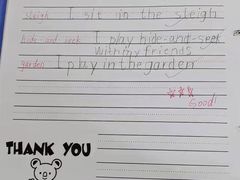 sleigh I sit in the sleigh
hide-and-seek I play hide-and-seek
with my friends
garden I play in the garden
Good!
THANK YOU